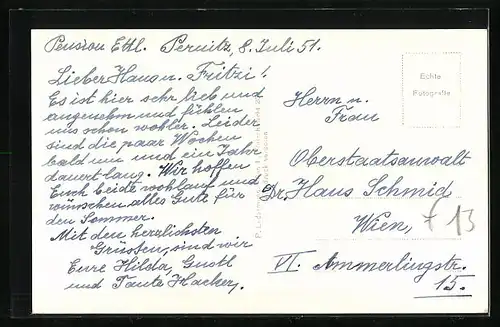 Pension Ettl. Pernitz, 8. Juli 51.
Lieber Hans u. Fritzi!
Es ist hier sehr lieb und
angenehm und fühlen
uns schon wohler. Leider
sind die paar Wochen
bald um und ein Jahr
dauert lang. Wir hoffen
Euch beide wohlauf und
wünschen alles Gute für
den Sommer.
Mit den herzlichsten
Grüssen, sind wir
Eure Hilda, Gustl
und Tante Hacker.
Echte
Fotografie
Herrn u.
Frau
Oberstaatsanwalt
Dr. Hans Schmid
Wien,
13
VI. Ammerlingstr.
15.